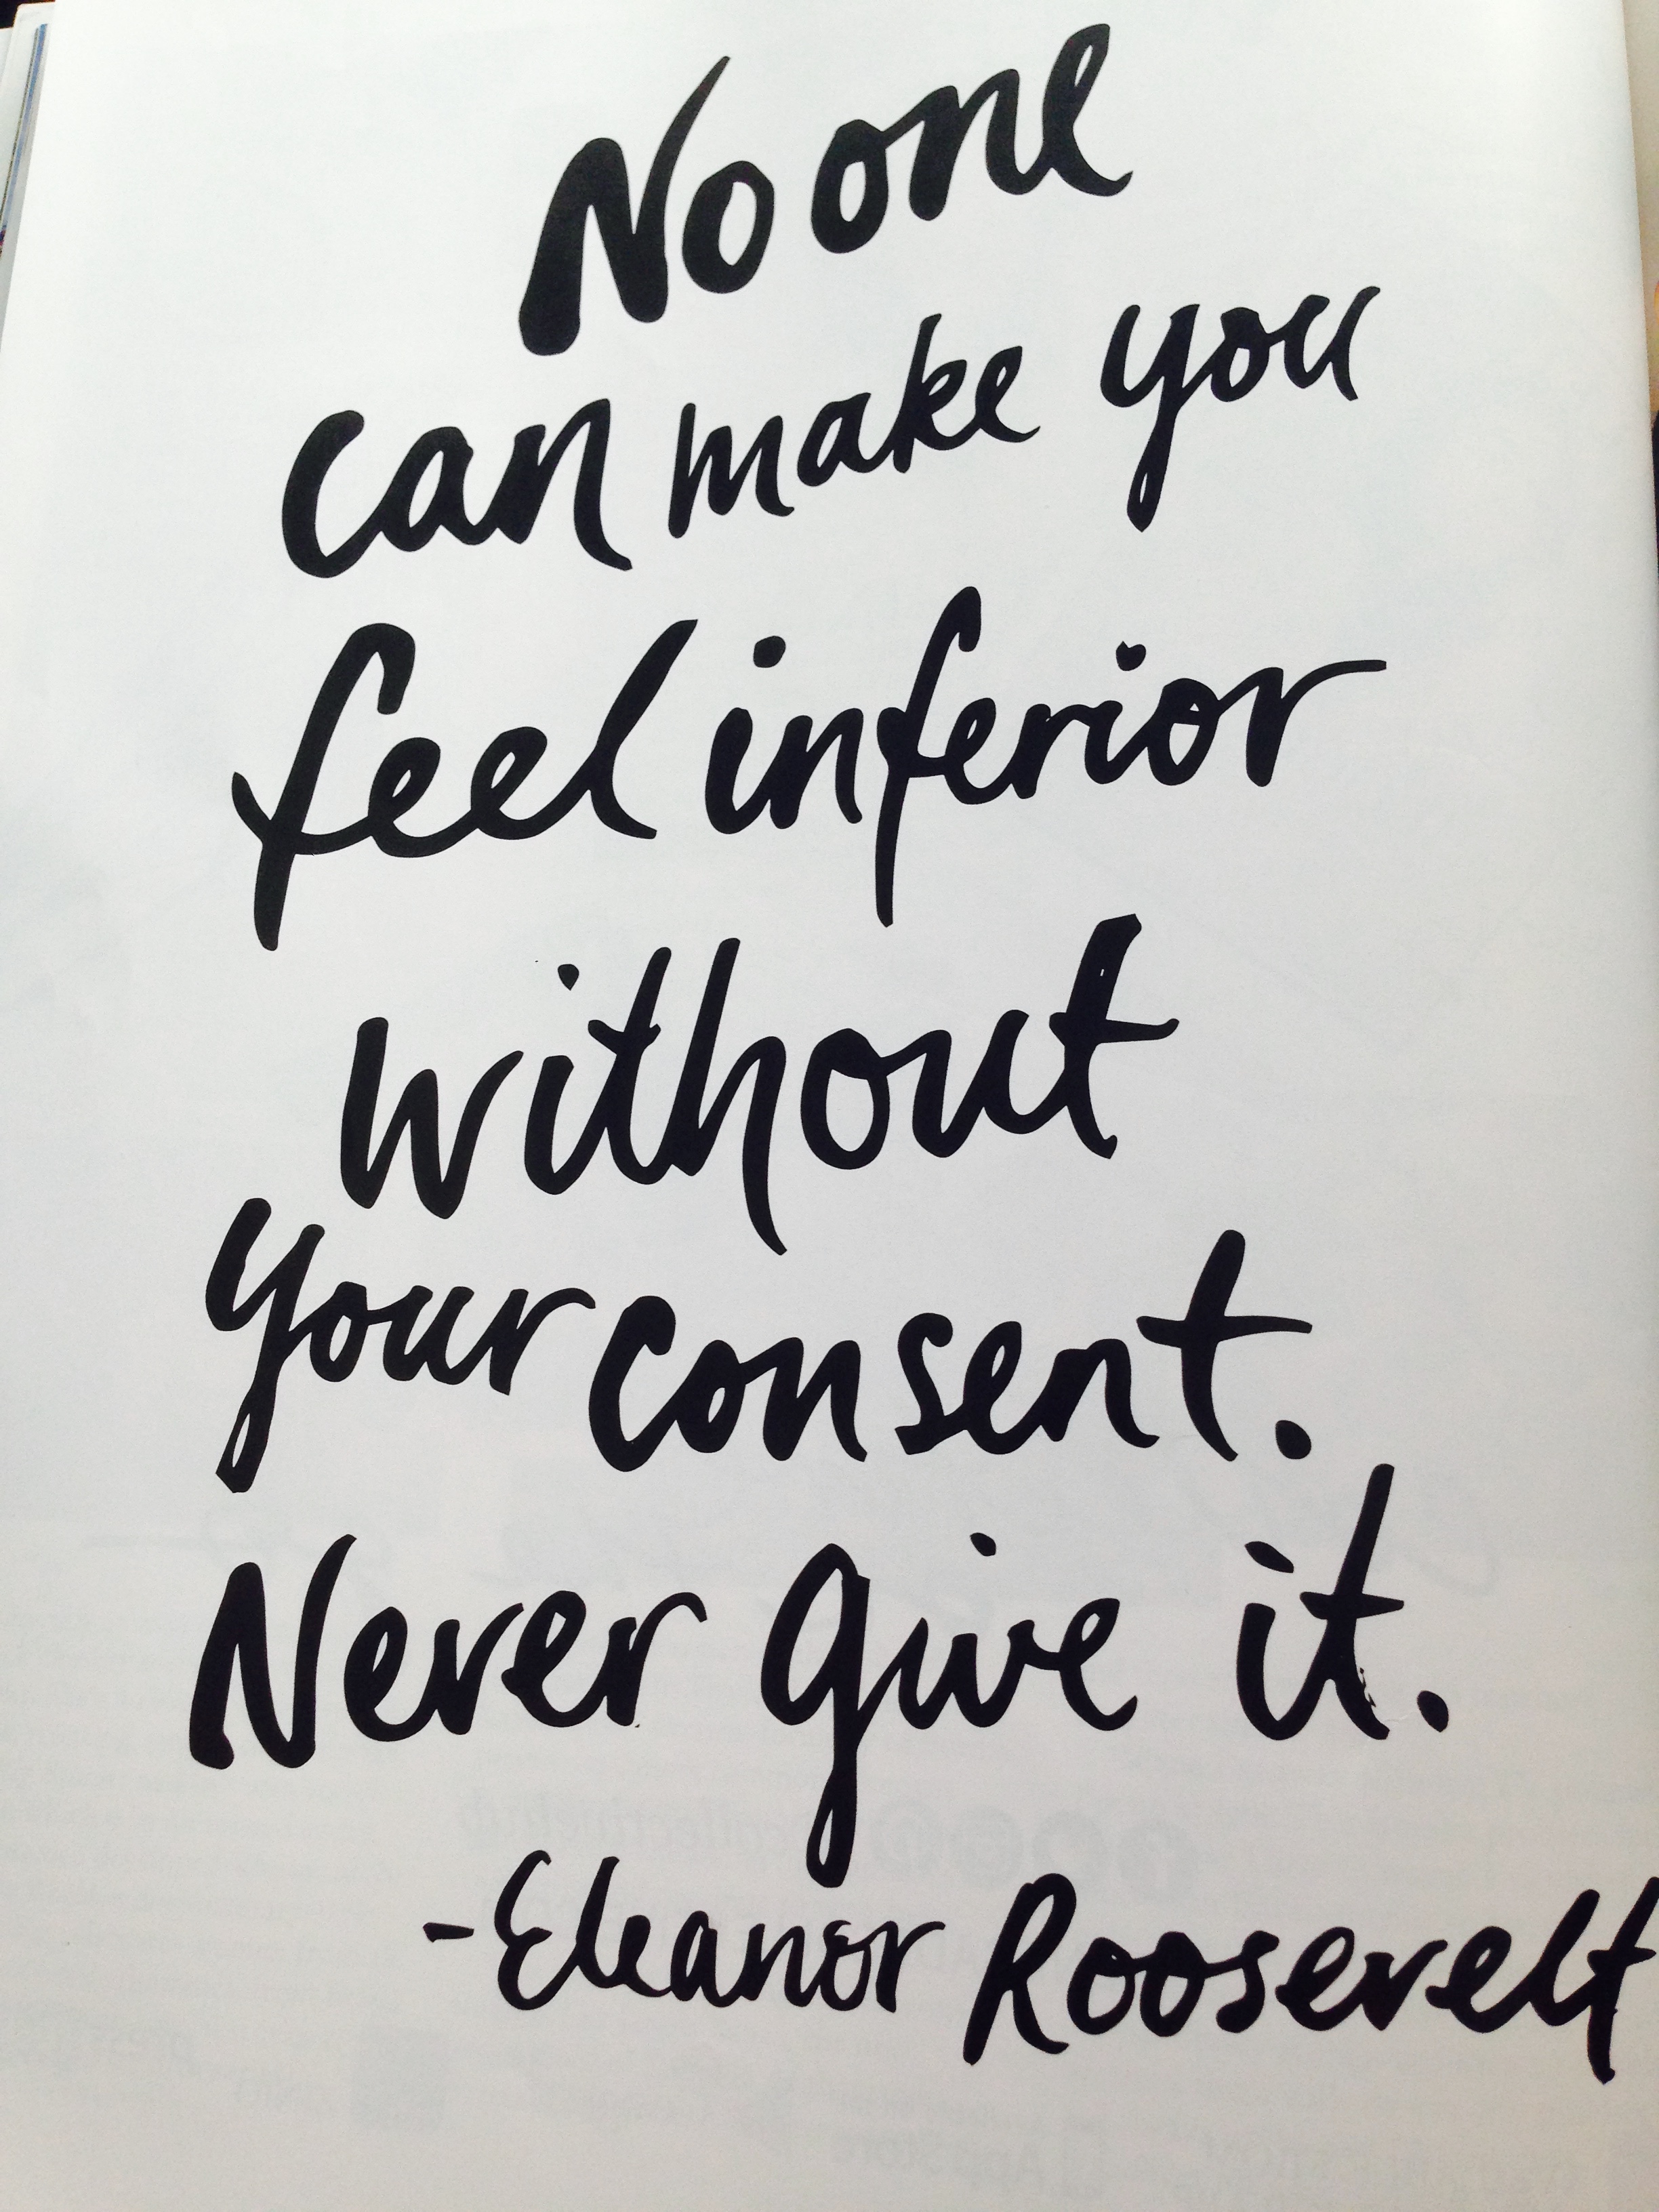 No one
can make you
feel inferior
without
your consent.
Never give it.
-Eleanor Roosevelt